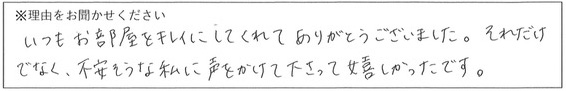 ※理由をお聞かせください
いつもお部屋をキレイにしてくれてありがとうございました。それだけ
でなく、不安そうな私に声をかけて下さって嬉しかったです。